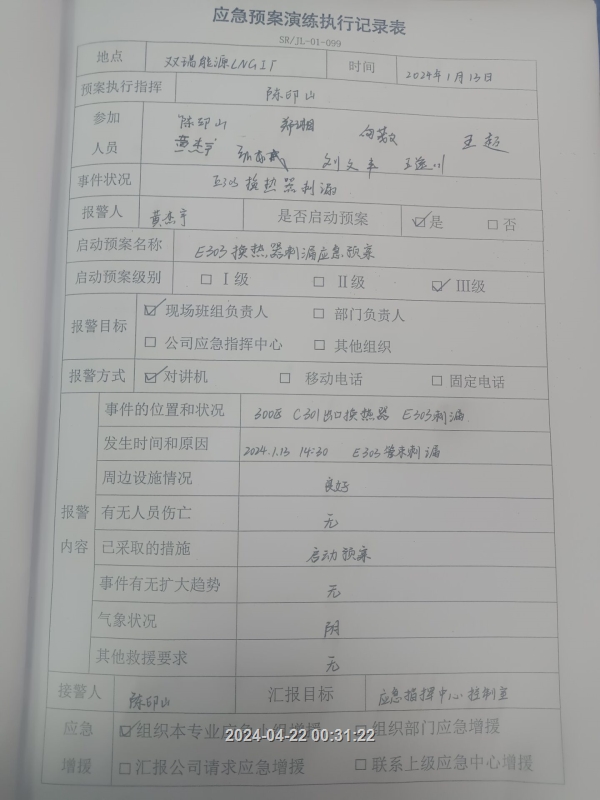 应急预案演练执行记录表
SR/JL-01-099
地点 双瑞能源LNG工厂 时间 2024年1月13日
预案执行指挥 陈印山
参加人员 陈印山 王超
黄杰宇 刘文丰
事件状况 E303换热器刺漏
报警人 黄杰宇 是否启动预案 ☑是 □否
启动预案名称 E303换热器刺漏应急预案
启动预案级别 □Ⅰ级 □Ⅱ级 ☑Ⅲ级
报警目标 ☑现场班组负责人 □部门负责人
□公司应急指挥中心 □其他组织
报警方式 ☑对讲机 □移动电话 □固定电话
报警内容
事件的位置和状况 300区 C301出口换热器 E303刺漏
发生时间和原因 2024.1.13 14:30 E303管束刺漏
周边设施情况 良好
有无人员伤亡 无
已采取的措施 启动预案
事件有无扩大趋势 无
气象状况 阴
其他救援要求 无
接警人 陈印山 汇报目标 应急指挥中心控制室
应急增援 ☑组织本专业应急小组增援 □组织部门应急增援
□汇报公司请求应急增援 □联系上级应急中心增援
2024-04-22 00:31:22